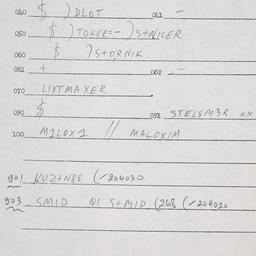 040 $ ) DLOT 041 -
050 $ ) TOKER=- ) S+NICER
060 $ ) S+O,RNIK
061 + 062 --
070 LIXTMAXER
090 $ 091 STELSM3R XX
100 M1LOX1 // MALOXIM
901 KUZ+N8E (/204030
903 SMID Q1 S+MID (268 (/204020